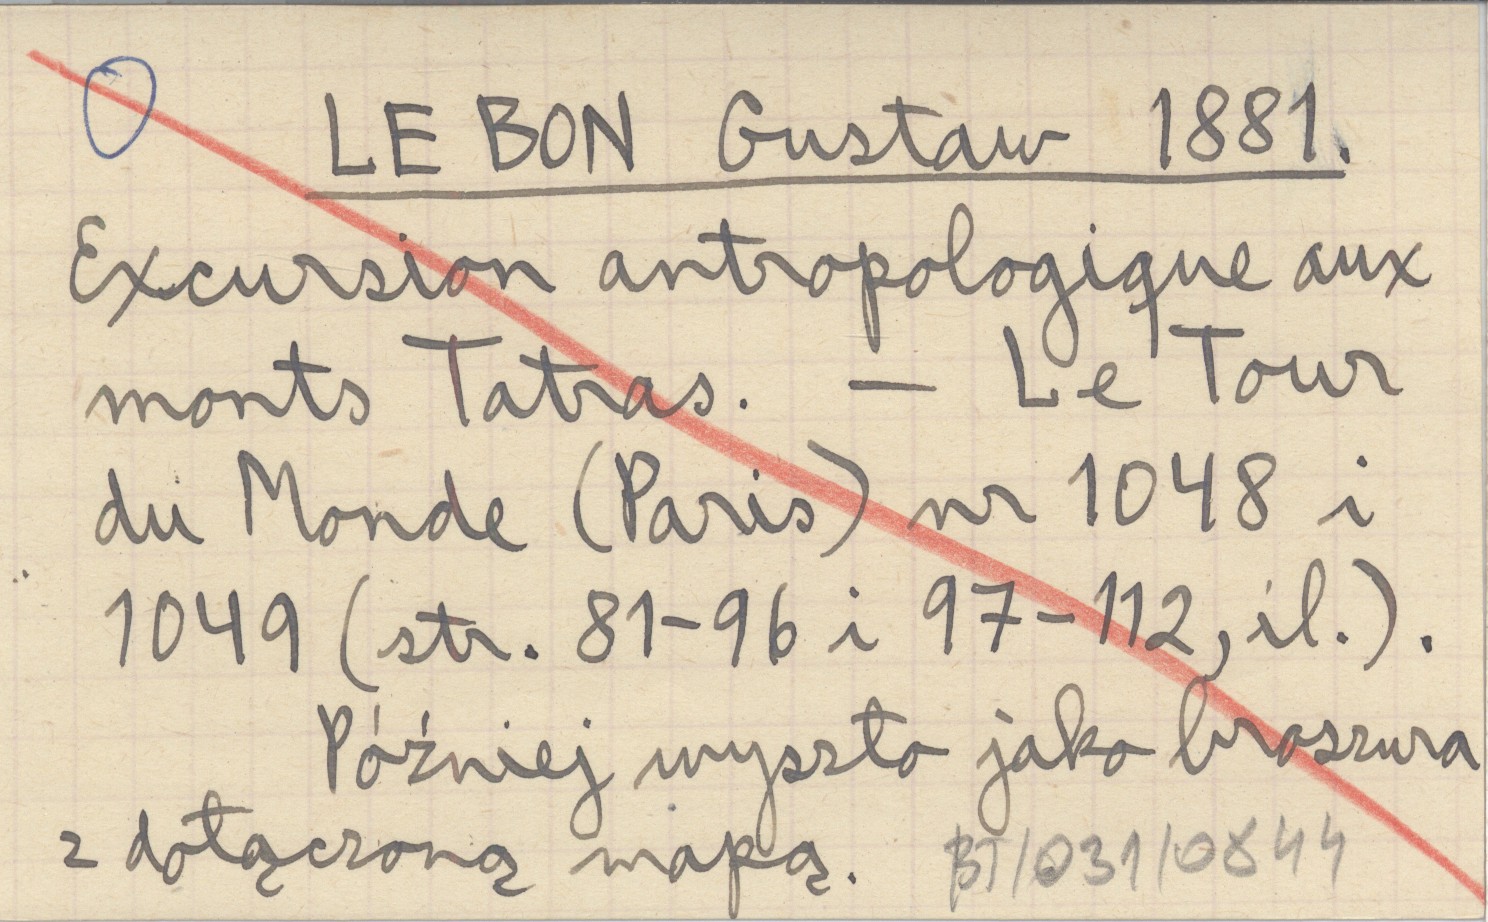 LE BON Gustaw 1881.
Excursion antropologique aux
monts Tatras. — Le Tour
du Monde (Paris) nr 1048 i
1049 (str. 81-96 i 97-112, il.).
Później wyszło jako broszura
z dołączoną mapą. BT/031/0844